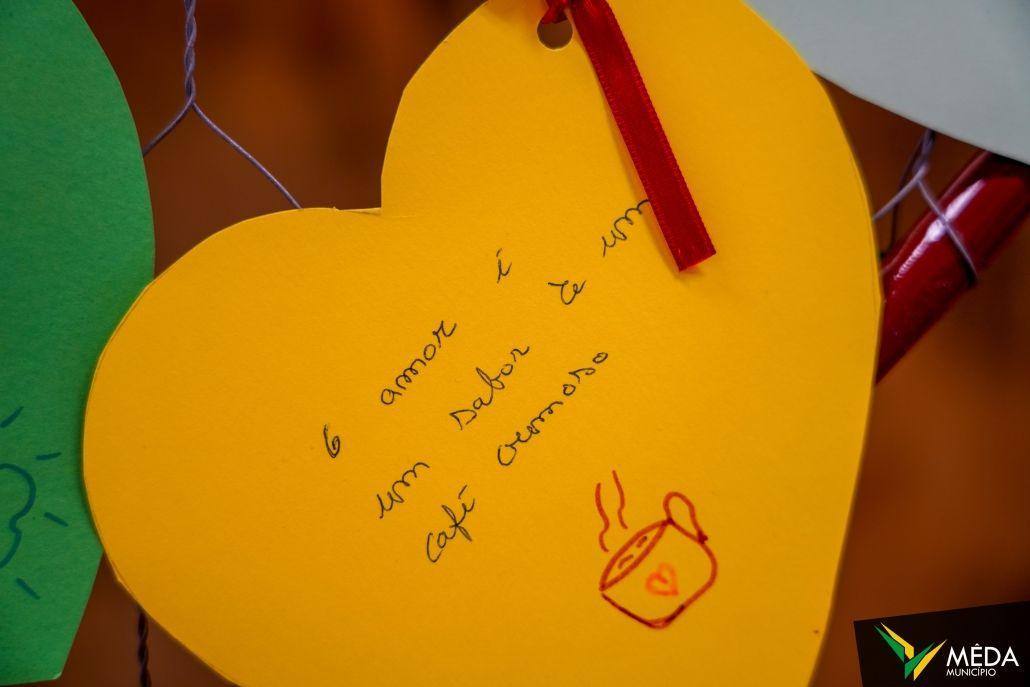 O amor é
um sabor de um
café cremoso
MÊDA
MUNICÍPIO